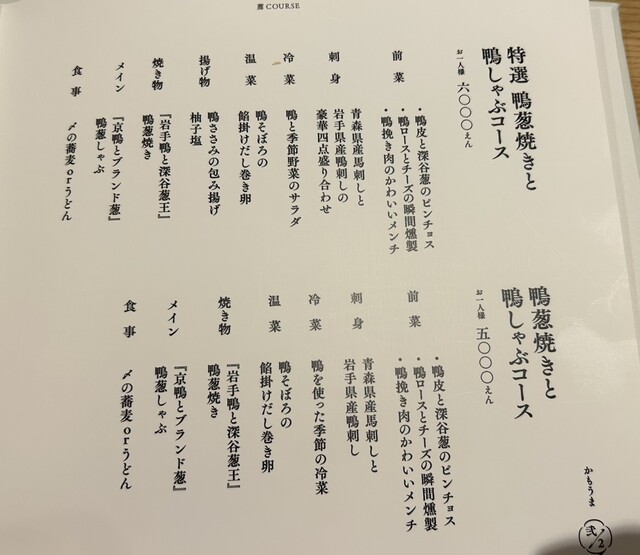 葱 COURSE
特選 鴨葱焼きと
鴨しゃぶコース
お一人様 六〇〇〇えん
前菜
・鴨皮と深谷葱のピンチョス
・鴨ロースとチーズの瞬間燻製
・鴨挽き肉のかわいいメンチ
刺身
青森県産馬刺しと
岩手県産鴨刺しの
豪華四点盛り合わせ
冷菜
鴨と季節野菜のサラダ
温菜
鴨そぼろの
餡掛けだし巻き卵
揚げ物
鴨ささみの包み揚げ
柚子塩
焼き物
『岩手鴨と深谷葱王』
鴨葱焼き
メイン
『京鴨とブランド葱』
鴨葱しゃぶ
食事
〆の蕎麦orうどん
鴨葱焼きと
鴨しゃぶコース
お一人様 五〇〇〇えん
前菜
・鴨皮と深谷葱のピンチョス
・鴨ロースとチーズの瞬間燻製
・鴨挽き肉のかわいいメンチ
刺身
青森県産馬刺しと
岩手県産鴨刺し
冷菜
鴨を使った季節の冷菜
温菜
鴨そぼろの
餡掛けだし巻き卵
焼き物
『岩手鴨と深谷葱王』
鴨葱焼き
メイン
『京鴨とブランド葱』
鴨葱しゃぶ
食事
〆の蕎麦orうどん
かもうま
弐/2